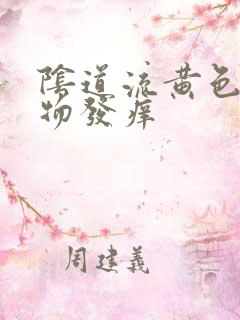 陰道流黄色
物發痒
周建義